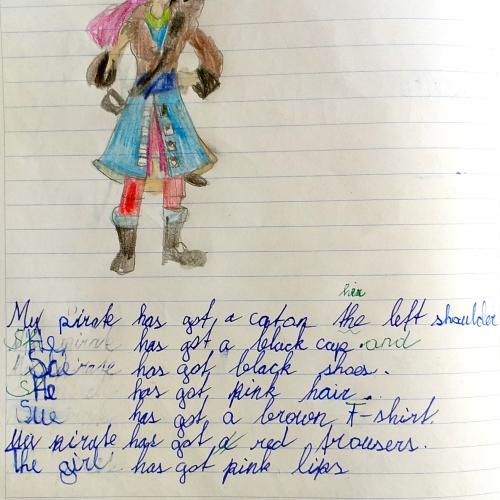 her
My pirate has got a cat on the left shoulder
She has got a black cap and
She has got black shoes.
She has got pink hair.
She has got a brown T-shirt.
My pirate has got a red trousers.
The girl has got pink lips